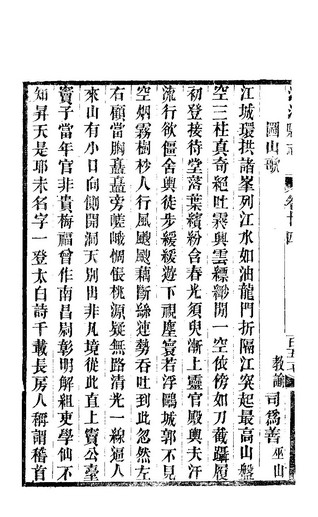 圌山歌
教諭 司爲善 巫山
江城環拱諸峯列江水如油龍門折隔江突起最高山盤
空三柱真奇絕吐霧興雲縹緲開一空依傍如刀截躡履
初登接待堂落葉繽紛含春光須臾漸上靈官殿輿夫汗
流行欲僵舍輿徒步緩緩遊下視塵寰若浮鷗城郭不見
空烟霧樹杪人行風颼颼藕斷絲連勢吞吐到此忽然左
右顧當胸矗矗旁峨惆悵桃源疑無路清光一線逼人
來山有小口向側開洞天別出非凡境從此直上竇公臺
竇子當年官非貴梅福曾作南昌尉彰明解組吏學仙不
知昇天是耶未名字一登太白詩千載長房人稱謂稽首